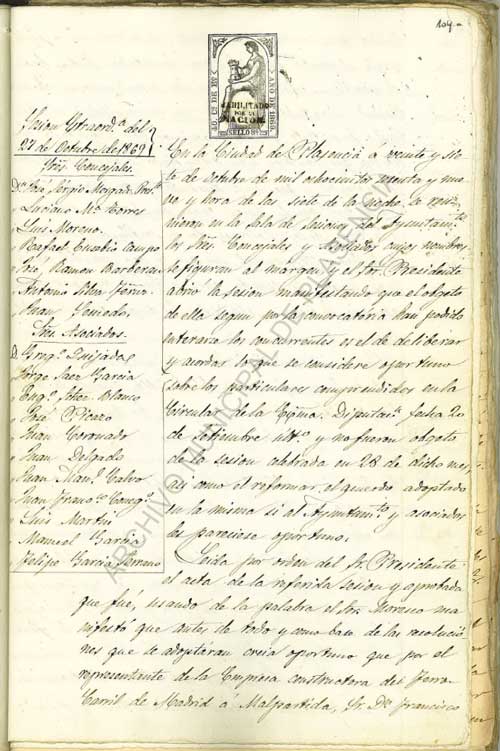 104
40 Cs. DE Eo.
AÑO DE 1869.
HABILITADO
POR LA
NACION.
SELLO 9º
Sesion Estraord.ª del
27 de Octubre de 1869
Sres. Concejales.
Luciano M.ª Torres
Luis Moreno
Rafael Eusebio Campo
Ramon Barberan
Antonio Silva
Juan
Sres. Asociados.
Greg.º Quijada
Jorge Saez Garcia
Eug.º Felez Blanco
José Picazo
Juan Coronado
Juan Delgado
Juan Man.l Calvo
Juan Fran.co Greg.º
Luis Martin
Manuel Garcia
Felipe Garcia Serrano
En la Ciudad de Plasencia á veinte y sie
te de octubre de mil ochocientos sesenta y nue
ve y hora de las siete de la noche, se reu
nieron en la Sala de Sesiones del Ayuntam.to
los Sres. Concejales y Asociados cuyos nombres
se figuran al margen, y el Sor. Presidente
abrió la sesion manifestando que el obgeto
de ella segun por la convocatoria han podido
enterarse los concurrentes es el de deliberar
y acordar lo que se considere oportuno
sobre los particulares comprendidos en la
Circular de la Ecma. Diputac.n fecha 20
de setiembre ult.º y no fueron obgeto
de la sesion celebrada en 28 de dicho mes,
asi como el reformar el acuerdo adoptado
en la misma si al Ayuntam.to y asociados
les pareciese oportuno.
Leida por orden del Sr. Presidente
el acta de la referida sesion y aprobada
que fué, usando de la palabra el Sor. Moreno ma
nifestó que antes de todo y como base de las resolucio
nes que se adoptáran creia oportuno que por el
representante de la Empresa constructora del Ferro-
Carril de Madrid á Malpartida, Sr. Dn. Francisco
ARCHIVO MUNICIPAL DE PLASENCIA